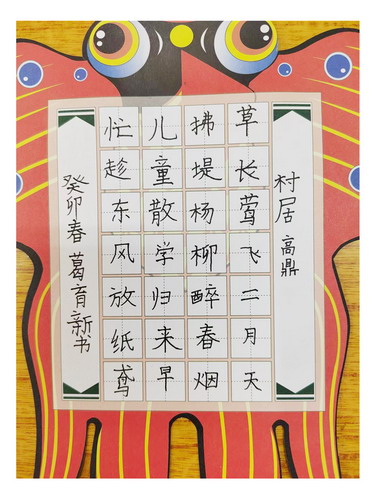 村居 高鼎
草长莺飞二月天
拂堤杨柳醉春烟
儿童散学归来早
忙趁东风放纸鸢
癸卯春 葛育新书